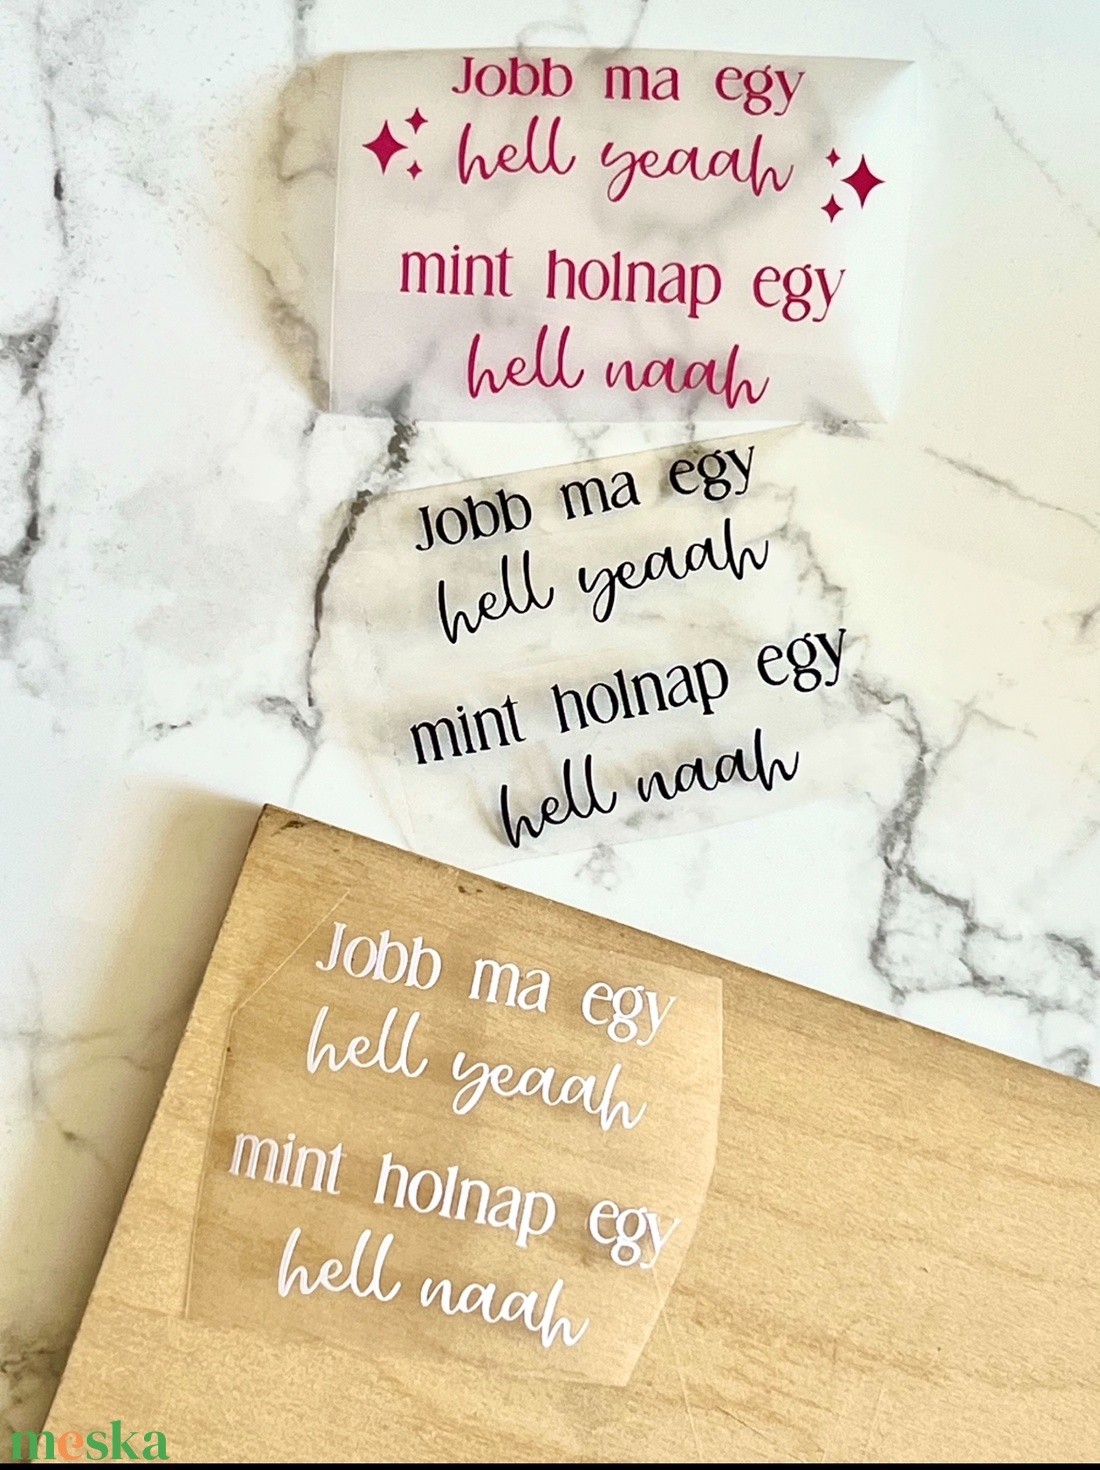 Jobb ma egy
hell yeaah
mint holnap egy
hell naah
Jobb ma egy
hell yeaah
mint holnap egy
hell naah
Jobb ma egy
hell yeaah
mint holnap egy
hell naah
meska